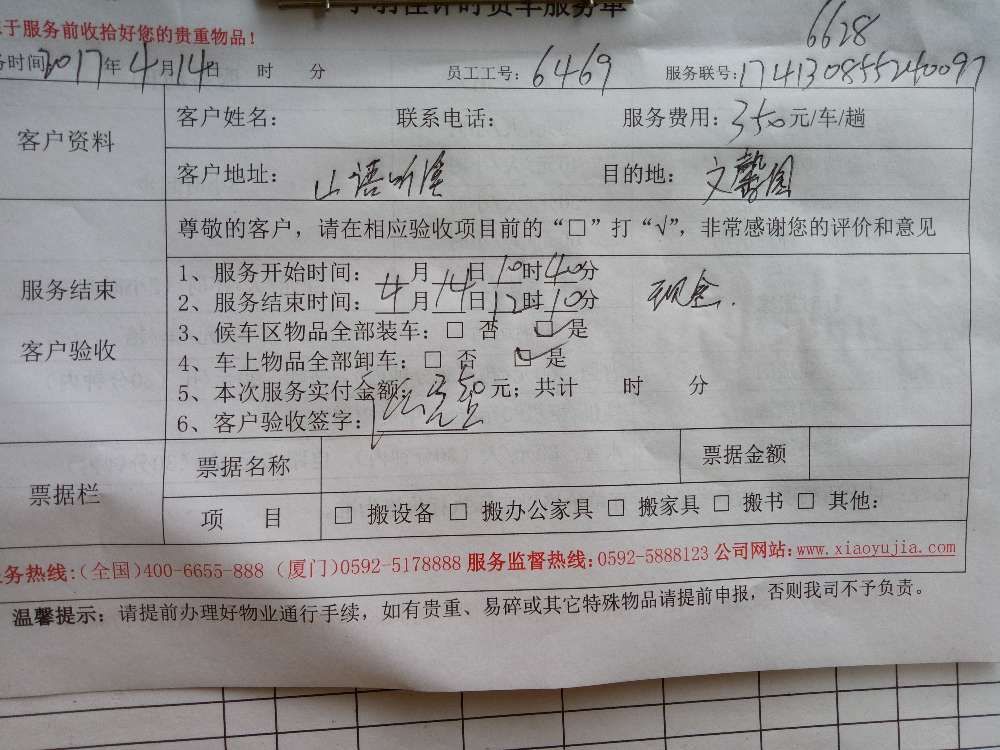 计时货车服务单
于服务前收拾好您的贵重物品！
6628
务时间2017年4月14日 时 分 员工工号：6469 服务联号：1741308555240097
客户资料
客户姓名： 联系电话： 服务费用：350元/车/趟
客户地址：山语听溪 目的地：文馨园
尊敬的客户，请在相应验收项目前的“□”打“√”，非常感谢您的评价和意见
服务结束
客户验收
1、服务开始时间：4月14日10时40分
2、服务结束时间：4月14日12时10分 现金.
3、候车区物品全部装车：□ 否 ☑ 是
4、车上物品全部卸车：□ 否 ☑ 是
5、本次服务实付金额：350元；共计 时 分
6、客户验收签字：
票据栏
票据名称 票据金额
项 目 □ 搬设备 □ 搬办公家具 □ 搬家具 □ 搬书 □ 其他：
务热线：(全国)400-6655-888 (厦门)0592-5178888 服务监督热线：0592-5888123 公司网站：www.xiaoyujia.com
温馨提示：请提前办理好物业通行手续，如有贵重、易碎或其它特殊物品请提前申报，否则我司不予负责。